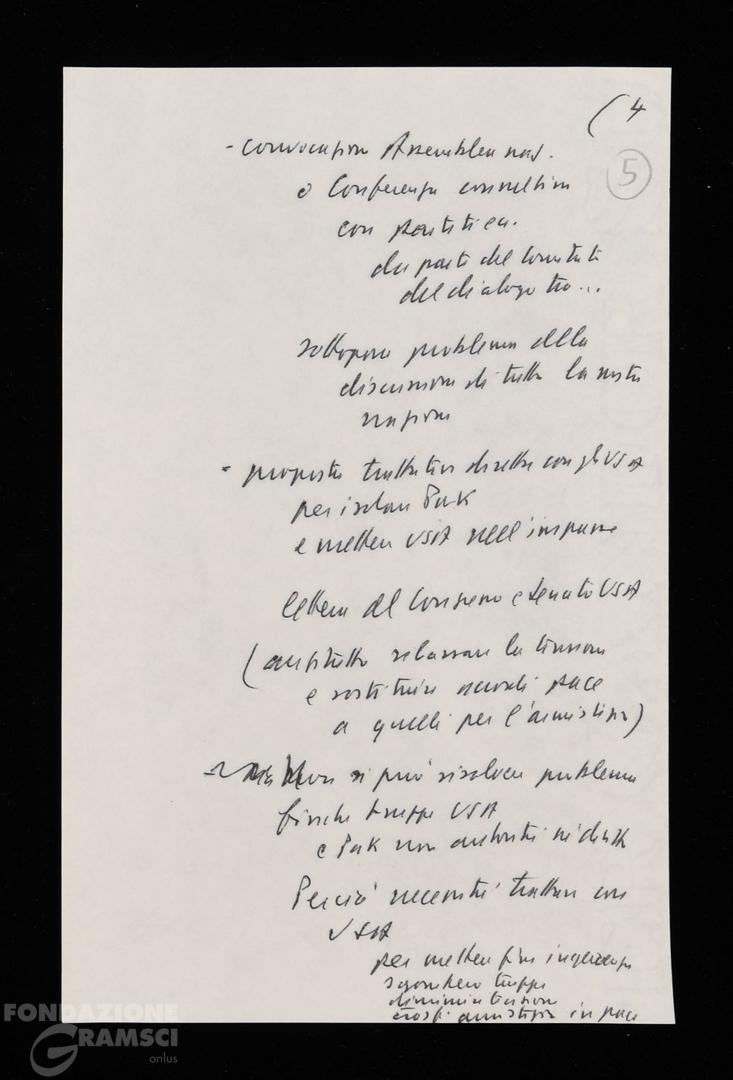 (4
5
- convocazione Assemblea naz.
o Conferenza consultiva
con partiti ecc.
da parte del Comitato
del dialogo tra...
sottoporre problema alla
discussione di tutta la nostra
nazione
- proposta trattativa diretta con gli USA
per isolare Pak
e mettere USA nell'impasse
lettera al Congresso e Senato USA
(anzitutto rilassare la tensione
e sostituire accordi pace
a quelli per l'armistizio)
Non si può risolvere problema
finché truppe USA
e Pak non autorità né diritto
Perciò necessità trattare con
USA
per mettere fine ingerenza
sgombero truppe
diminuire tensione
armistizio in pace
FONDAZIONE
GRAMSCI
onlus